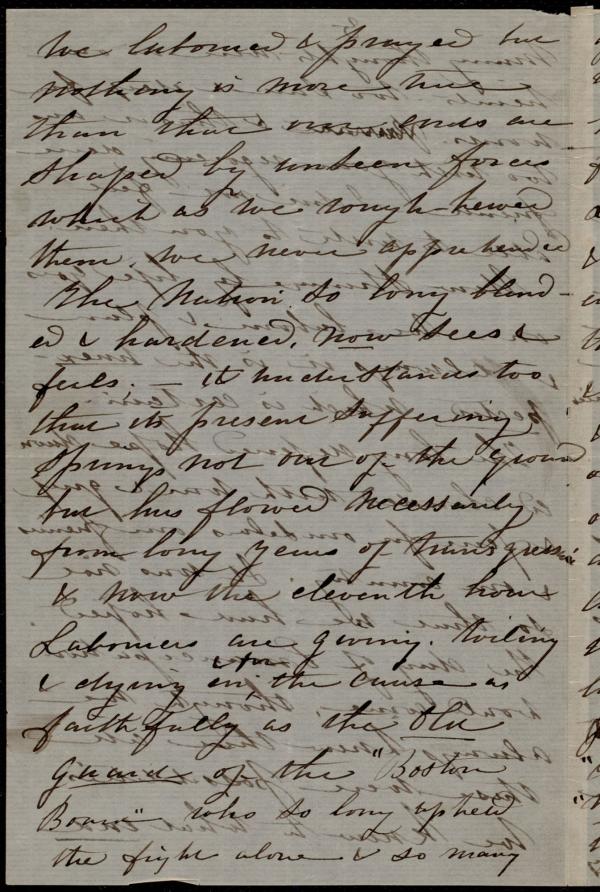 We labored & prayed but
nothing is more true
than that our ends are
shaped by unseen forces
which as we rough-hewed
them, we never apprehended
The Nation so long blind-
ed & hardened, now sees &
feels. — it understands too
that its present suffering
springs not out of the ground
but has flowed necessarily
from long years of transgression
& now the eleventh hour
Laborers are giving, toiling
& dying in, & for the cause as
faithfully as the Old
guard of the "Boston
Board" who so long upheld
the fight alone & so many